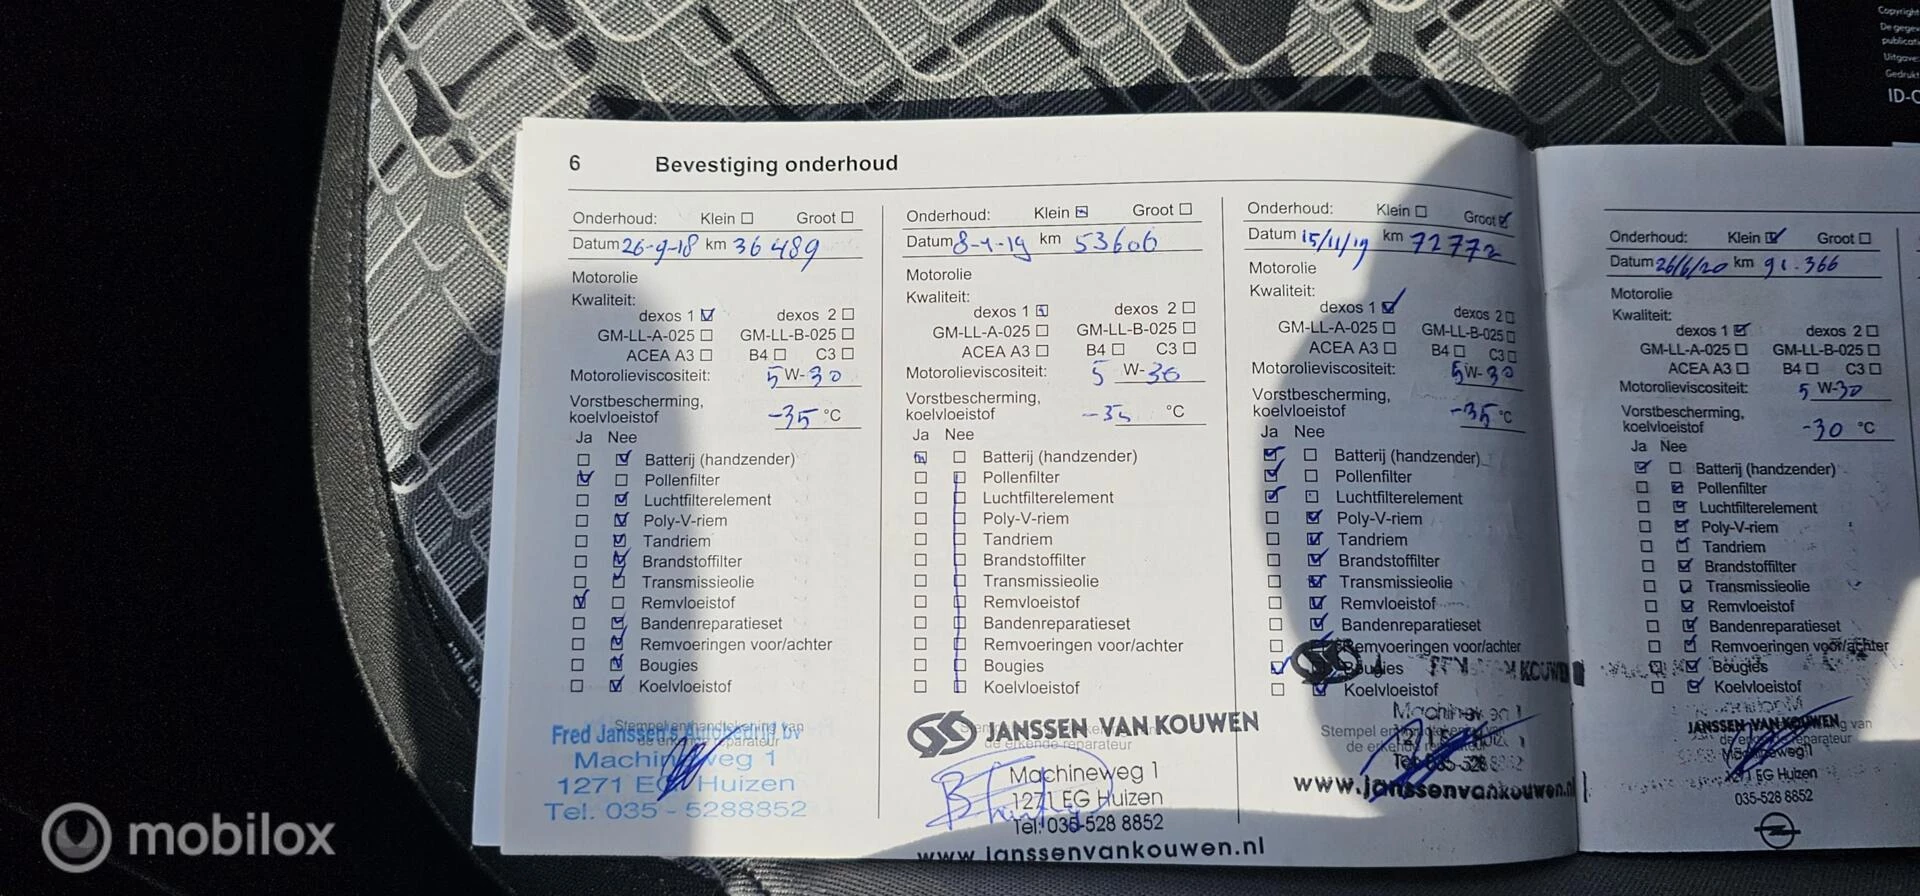 Copyright
De gegev
publicati
Uitgave:
Gedrukt
ID-O
6 Bevestiging onderhoud
Onderhoud: Klein Groot
Datum 26-9-18 km 36489
Motorolie
Kwaliteit:
dexos 1 dexos 2
GM-LL-A-025 GM-LL-B-025
ACEA A3 B4 C3
Motorolieviscositeit: 5 W-30
Vorstbescherming,
koelvloeistof -35 °C
Ja Nee
Batterij (handzender)
Pollenfilter
Luchtfilterelement
Poly-V-riem
Tandriem
Brandstoffilter
Transmissieolie
Remvloeistof
Bandenreparatieset
Remvoeringen voor/achter
Bougies
Koelvloeistof
Stempel en handtekening van
de erkende reparateur
Fred Janssen's Autobedrijf bv
Machineweg 1
1271 EG Huizen
Tel. 035 - 5288852
Onderhoud: Klein Groot
Datum km 53606
Motorolie
Kwaliteit:
dexos 1 dexos 2
GM-LL-A-025 GM-LL-B-025
ACEA A3 B4 C3
Motorolieviscositeit: 5 W-30
Vorstbescherming,
koelvloeistof -35 °C
Ja Nee
Batterij (handzender)
Pollenfilter
Luchtfilterelement
Poly-V-riem
Tandriem
Brandstoffilter
Transmissieolie
Remvloeistof
Bandenreparatieset
Remvoeringen voor/achter
Bougies
Koelvloeistof
JANSSEN VAN KOUWEN
de erkende reparateur
Machineweg 1
1271 EG Huizen
Tel: 035-528 8852
www.janssenvankouwen.nl
Onderhoud: Klein Groot
Datum 15/11/19 km 72772
Motorolie
Kwaliteit:
dexos 1 dexos 2
GM-LL-A-025 GM-LL-B-025
ACEA A3 B4 C3
Motorolieviscositeit: 5 W-30
Vorstbescherming,
koelvloeistof -35 °C
Ja Nee
Batterij (handzender)
Pollenfilter
Luchtfilterelement
Poly-V-riem
Tandriem
Brandstoffilter
Transmissieolie
Remvloeistof
Bandenreparatieset
Remvoeringen voor/achter
Bougies KOUWEN
Koelvloeistof
Machineweg 1
Stempel en
de erkende
www.janssenvankouwen.nl
Onderhoud: Klein Groot
Datum 26/6/20 km 91.366
Motorolie
Kwaliteit:
dexos 1 dexos 2
GM-LL-A-025 GM-LL-B-025
ACEA A3 B4 C3
Motorolieviscositeit: 5 W-30
Vorstbescherming,
koelvloeistof -30 °C
Ja Nee
Batterij (handzender)
Pollenfilter
Luchtfilterelement
Poly-V-riem
Tandriem
Brandstoffilter
Transmissieolie
Remvloeistof
Bandenreparatieset
Remvoeringen voor/achter
Bougies
Koelvloeistof
JANSSEN VAN KOUWEN
de erkende reparateur
Machineweg 1
1271 EG Huizen
035-528 8852
mobilox